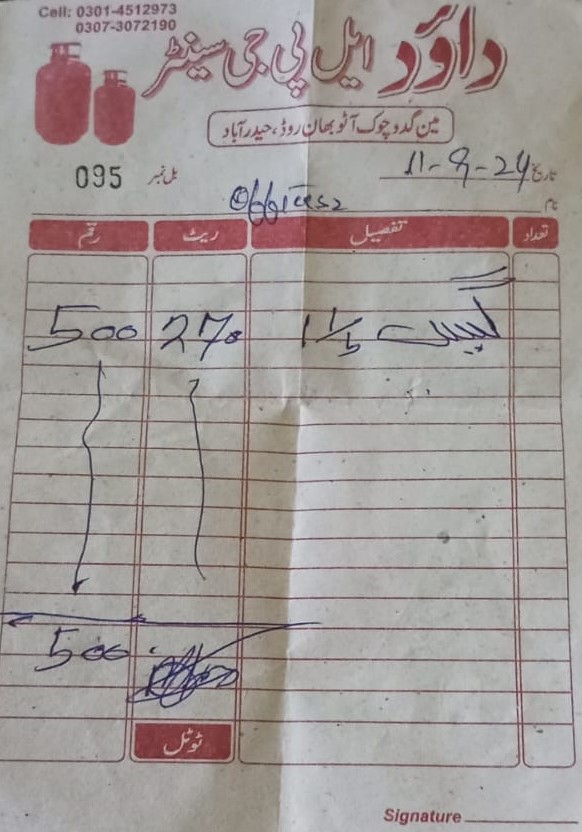 Cell: 0301-4512973
0307-3072190
داؤد ایل پی جی سینٹر
مین گدو چوک آٹو بھان روڈ، حیدرآباد
بل نمبر 095
تاریخ 11-9-24
نام
تعداد تفصیل ریٹ رقم
گیس 270 500
500
ٹوٹل
Signature